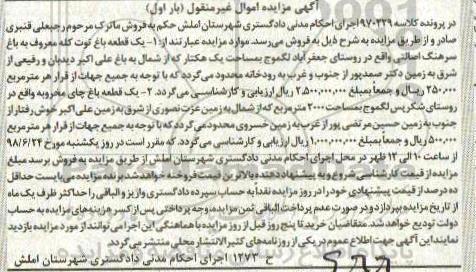 آگهی مزایده اموال غیر منقول (بار اول)
در پرونده کلاسه ۹۷۰۳۲۹ اجرای احکام مدنی دادگستری شهرستان املش حکم به فروش ماترک مرحوم رجبعلی قنبری
صادر و از طریق مزایده به شرح ذیل به فروش می‌رسد. موارد مزایده عبارتند از: ۱- یک قطعه باغ توت کله معروف به باغ
سرهنگ اصالتی واقع در روستای جعفرآباد لگموج بمساحت یک هکتار که از شمال به باغ علی اکبر دیدبان و رفیعی از
شرق به زمین دکتر صمدپور از جنوب و غرب به رودخانه محدود می‌گردد که با توجه به جمیع جهات از قرار هر مترمربع
۲۵۰,۰۰۰ ریال و جمعاً بمبلغ ۲,۵۰۰,۰۰۰,۰۰۰ ریال ارزیابی و کارشناسی می‌گردد. ۲- یک قطعه باغ چای مخروبه واقع در
روستای شکرپس لگموج بمساحت ۲۰۰۰ مترمربع که از شمال به زمین عزت نصوری از شرق به زمین علی اکبر خوش رفتار از
جنوب به زمین حسین مرتضی پور از غرب به زمین خسروی محدود می‌گردد که با توجه به جمیع جهات از قرار هر مترمربع
۵۰۰,۰۰۰ ریال و جمعاً بمبلغ ۱,۰۰۰,۰۰۰,۰۰۰ ریال ارزیابی و کارشناسی می‌گردد، که مقرر است در روز یکشنبه مورخ ۹۸/۶/۲۴
از ساعت ۱۰ الی ۱۲ ظهر در محل اجرای احکام مدنی دادگستری شهرستان املش از طریق مزایده به فروش برسد مبلغ
مزایده از قیمت کارشناسی شروع و به پیشنهاد دهنده بالاترین قیمت فروخته خواهد شد برنده مزایده می‌بایست حداقل
ده درصد از قیمت پیشنهادی خود را در روز مزایده نقداً به حساب سپرده دادگستری واریز و الباقی را حداکثر ظرف یک ماه
از تاریخ مزایده بپردازد و در صورت عدم پرداخت الباقی ثمن مزایده، وجه پرداختی پس از کسر هزینه‌های مزایده به حساب
دولت تودیع خواهد شد. متقاضیان خرید تا پنج روز قبل از روز مزایده با هماهنگی این اجرا می‌توانند از مورد مزایده بازدید
نمایند این آگهی جهت اطلاع عموم در یکی از روزنامه‌های کثیرالانتشار محلی منتشر می‌گردد
ح ۱۲۷۳ اجرای احکام مدنی دادگستری شهرستان املش